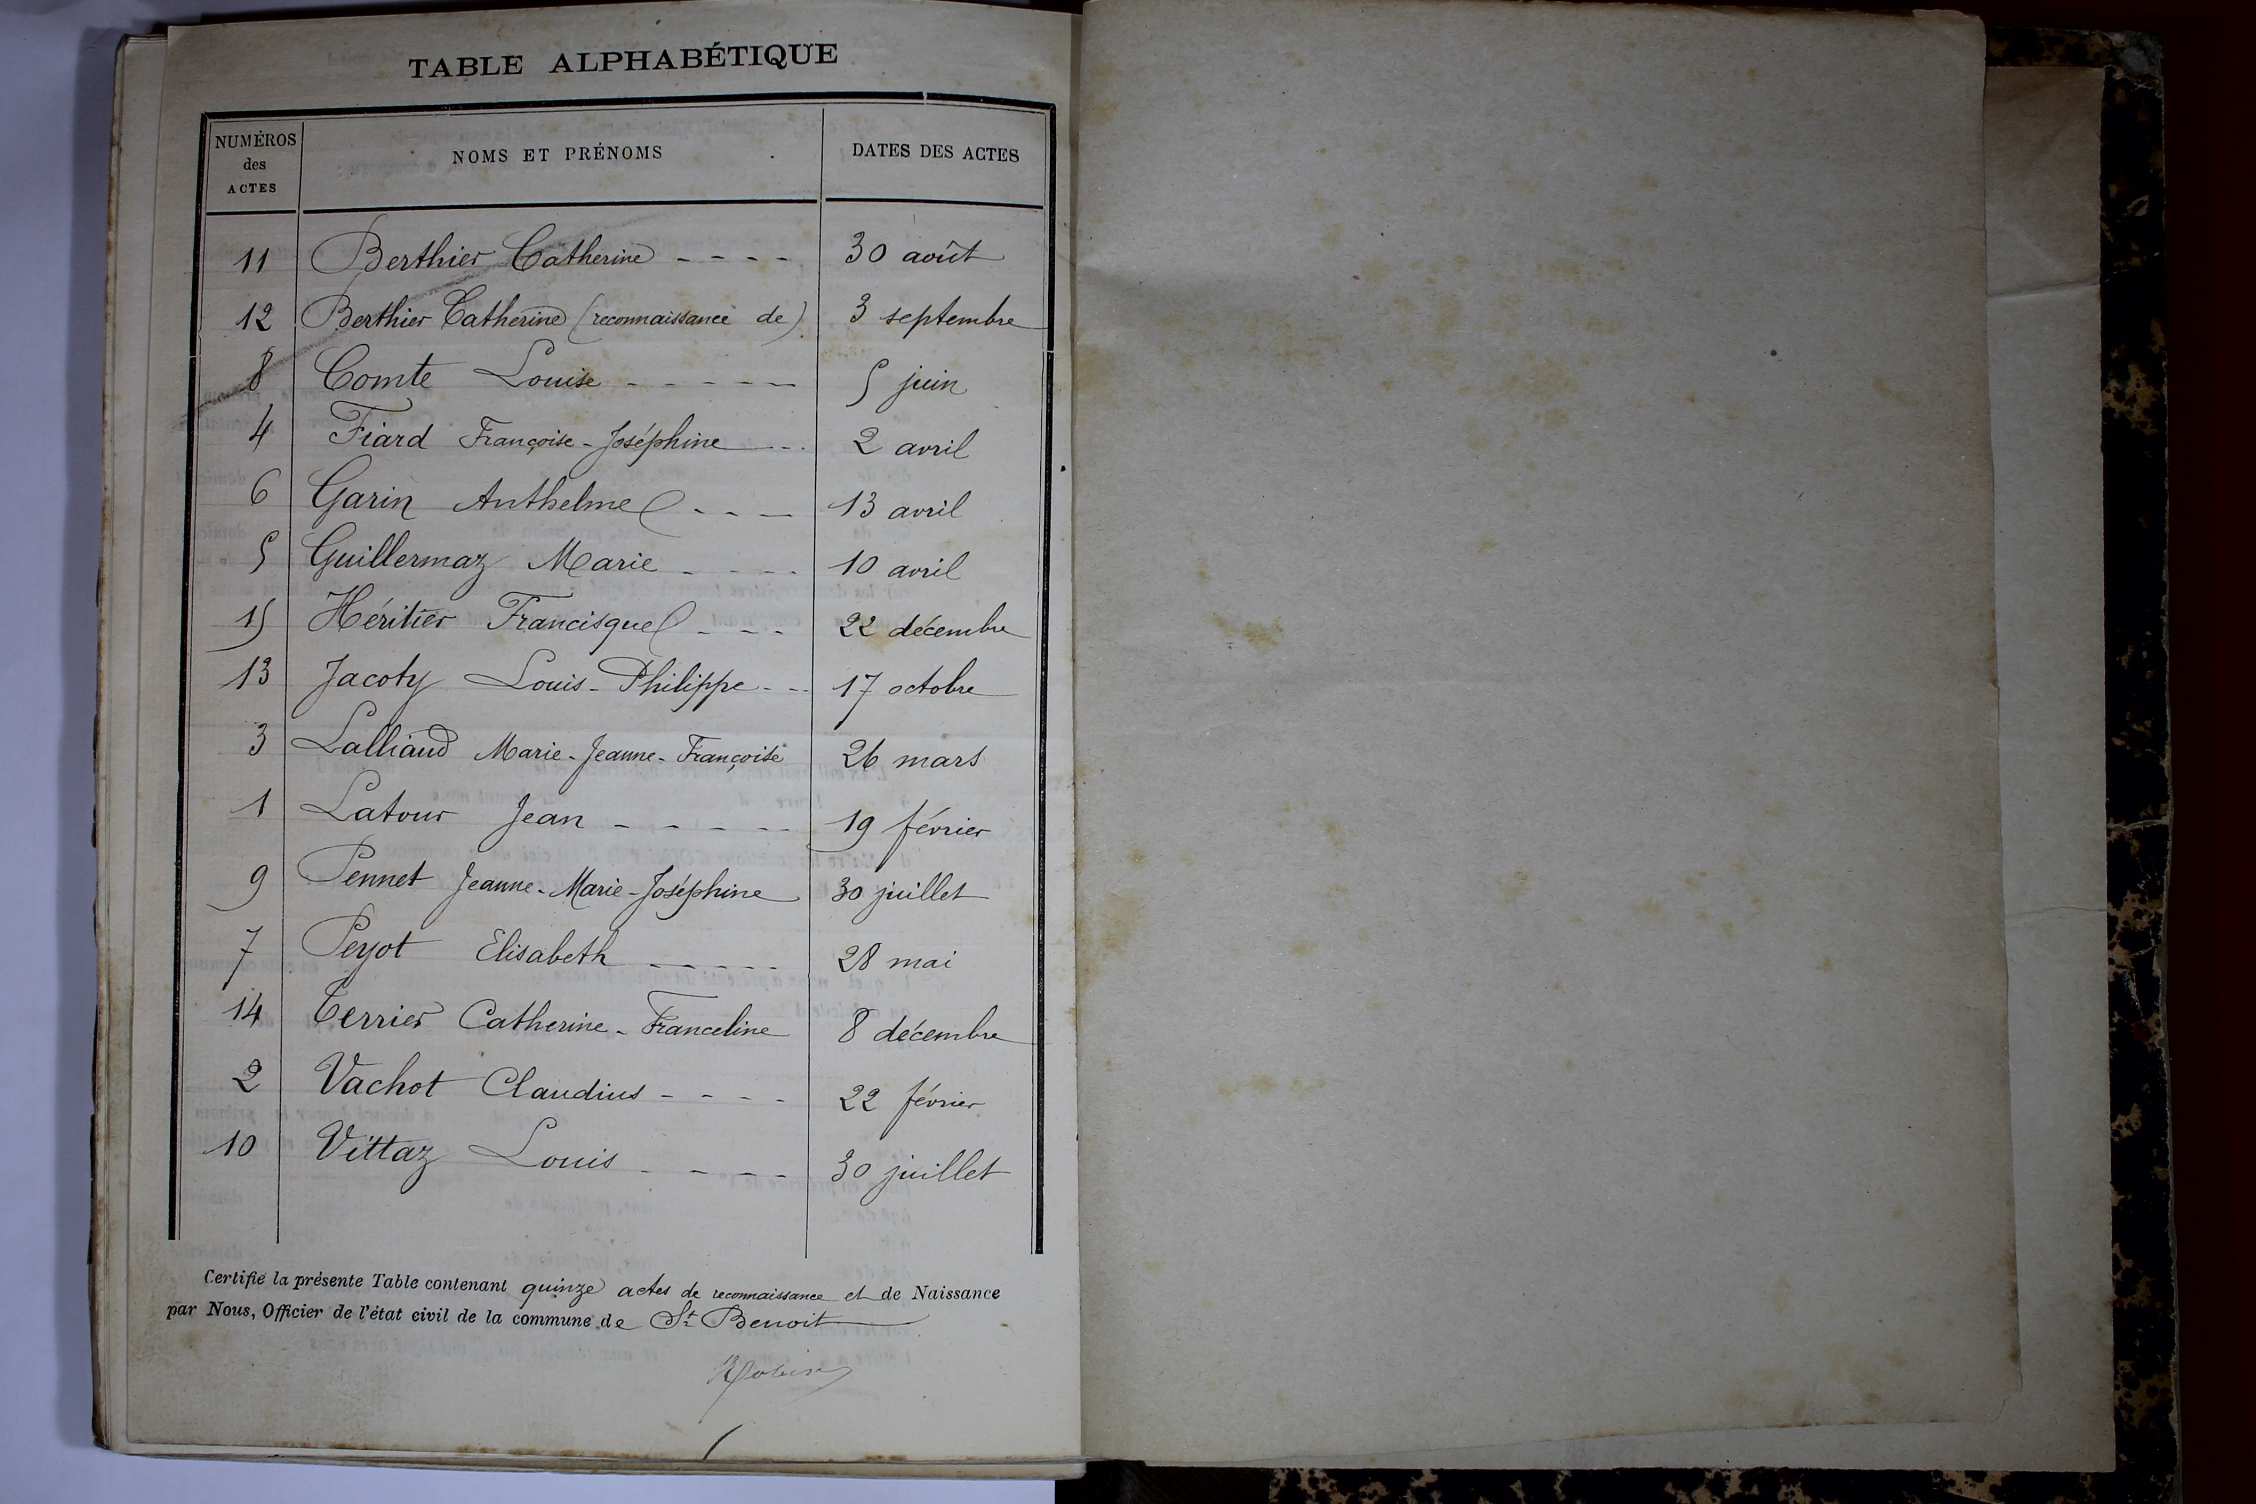 TABLE ALPHABÉTIQUE
NUMÉROS des ACTES NOMS ET PRÉNOMS DATES DES ACTES
11 Berthier Catherine - - - - 30 août
12 Berthier Catherine (reconnaissance de) 3 septembre
8 Comte Louise - - - - - 5 juin
4 Fiard Françoise-Joséphine - - 2 avril
6 Garin Anthelme - - - 13 avril
5 Guillermaz Marie - - - - 10 avril
15 Héritier Francisque - - - 22 décembre
13 Jacoty Louis-Philippe - - 17 octobre
3 Lalliaud Marie-Jeanne-Françoise 26 mars
1 Latour Jean - - - - - 19 février
9 Pennet Jeanne-Marie-Joséphine 30 juillet
7 Peyot Elisabeth - - - - - 28 mai
14 Terrier Catherine-Franceline 8 décembre
2 Vachot Claudius - - - - 22 février
10 Vittaz Louis - - - - 30 juillet
Certifié la présente Table contenant quinze actes de reconnaissance et de Naissance
par Nous, Officier de l'état civil de la commune de St Benoit